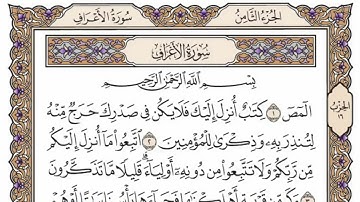 سُورَةُ الأَعْرَافِ
الجُزْءُ الثَّامِنُ
سُورَةُ الأَعْرَافِ
بِسْمِ اللَّهِ الرَّحْمَٰنِ الرَّحِيمِ
الٓمٓصٓ ١ كِتَٰبٌ أُنزِلَ إِلَيْكَ فَلَا يَكُن فِى صَدْرِكَ حَرَجٌ مِّنْهُ
لِتُنذِرَ بِهِۦ وَذِكْرَىٰ لِلْمُؤْمِنِينَ ٢ ٱتَّبِعُوا۟ مَآ أُنزِلَ إِلَيْكُم
مِّن رَّبِّكُمْ وَلَا تَتَّبِعُوا۟ مِن دُونِهِۦٓ أَوْلِيَآءَ قَلِيلًا مَّا تَذَكَّرُونَ
الحزب
١٦